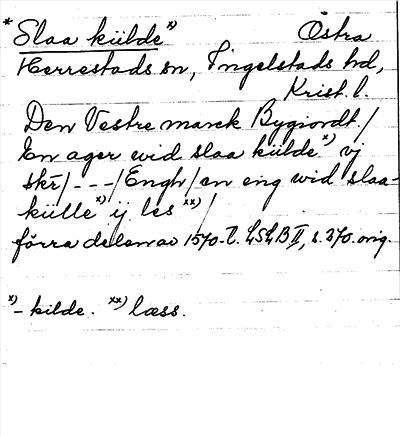 * Slaa külde x) Östra
Herrestads sn, Ingelstads hd,
Krist. l.
Den Vestre marck Bygiordt./
En ager wid slaa külde x) vj
skr̄/---/Engh/en eng wid slaa-
külle x) ij les xx)/
förra delen av 1570-t. LSLB II, s. 270. orig.
x) – kilde. xx) læss.